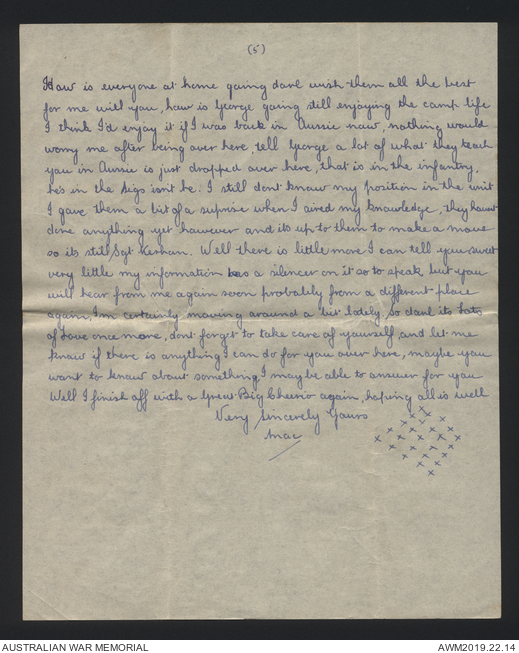 (5)
How is everyone at home going darl wish them all the best
for me will you, how is George going still enjoying the camp life
I think I'd enjoy it if I was back in Aussie now, nothing would
worry me after being over here, tell George a lot of what they teach
you in Aussie is just dropped over here, that is in the infantry,
he's in the sigs isn't he. I still dont know my position in the unit
I gave them a bit of a suprise when I aired my knowledge, they havnt
done anything yet however and its up to them to make a move
so its still Sgt Kerhan. Well there is little more I can tell you sweet
very little my information has a silencer on it so to speak but you
will hear from me again soon probably from a different place
again, I'm certainly moving around a bit lately, so darl its Lots
of Love once more, dont forget to take care of yourself, and let me
know if there is anything I can do for you over here, maybe you
want to know about something I may be able to answer for you
Well I finish off with a Great Big Cheerio again, hoping all is well
Very Sincerely Yours
Mac
x x x x x x x x x x x x x x x x x x x x x x x x
AUSTRALIAN WAR MEMORIAL
AWM2019.22.14